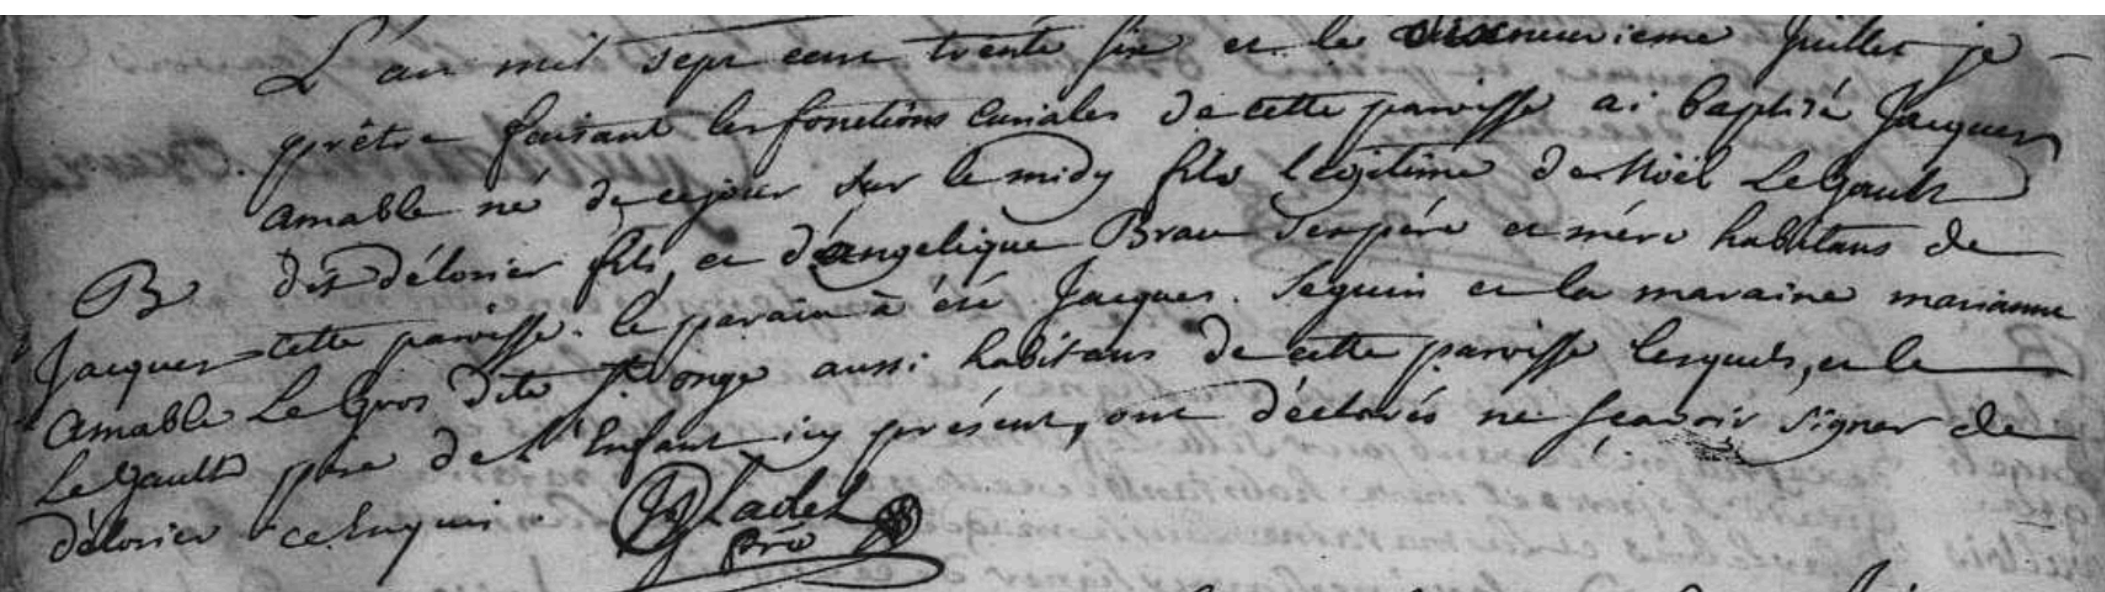 L'an mil sept cent trente six et le dixneuvieme Juillet je
prêtre faisant les fonctions Curiales de cette paroisse ai baptisé Jacques
Amable né de ce jour sur le midy fils légitime de Noël LeGault
B dit délorier fils, et d'angelique Brau ses père et mère habitans de
Jacques cette paroisse. le parain à été Jacques Seguin et la maraine marianne
Amable Le Gros dite st onge aussi habitans de cette paroisse lesquels, et le
LeGault père de l'Enfant icy présent, ont déclarés ne sçavoir signer de
délorier ce Enquis.
Ladet
ptre